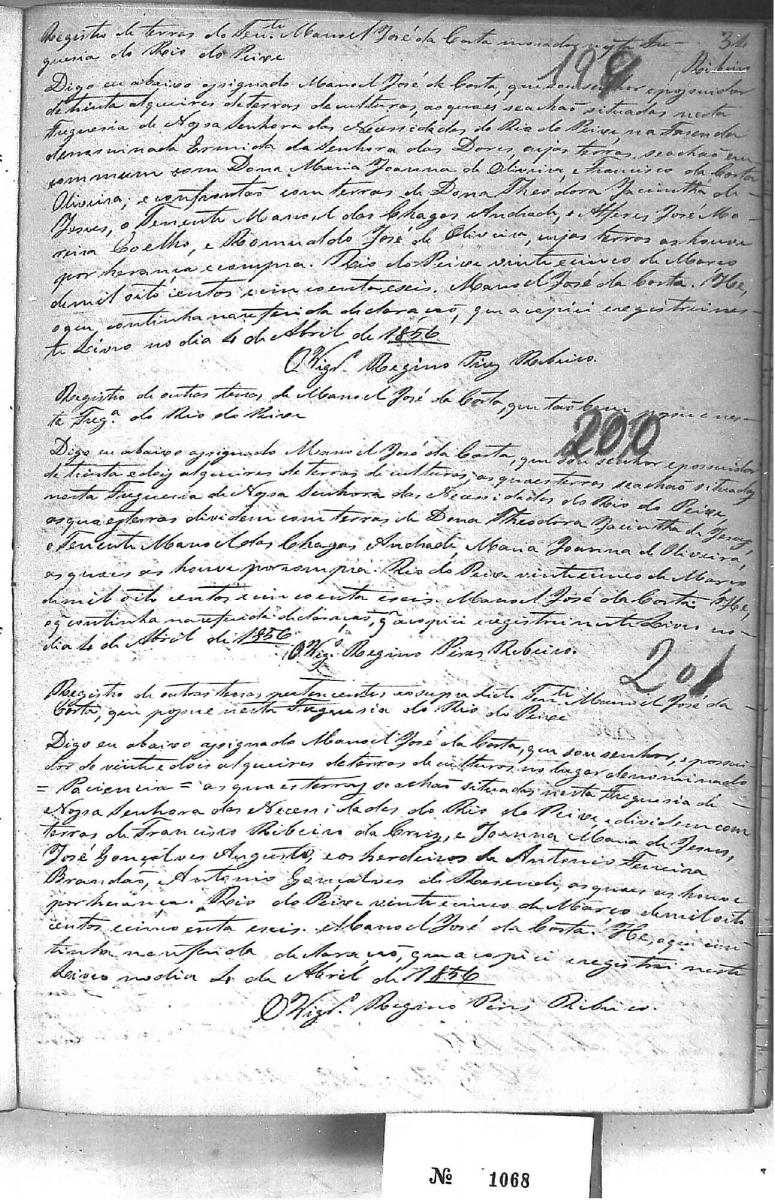 34
Ribeiro
Registro de terras do Ten.te Manoel José da Costa morador nesta Fre-
guesia do Rio do Peixe
199
Digo eu abaixo assignado Manoel José da Costa, que sou senher e possuidor
de trinta alqueires de terras de culturas, as quaes se achão situadas nesta
Freguesia de Nossa Senhora das Necessidades do Rio do Peixe na Fasenda
denominada Ermida da Senhora das Dores, cujas terras, se achão em
commum com Dona Maria Joanna de Oliveira, e Francisco da Costa
Oliveira; e confrontão com terras de Dona Theodora Jacintha de
Jesus, o Tenente Manoel das Chagas Andrade, o Alferes José Mo-
reira Coelho, e Romualdo José de Oliveira, cujas terras as houve
por herança e compra. Rio do Peixe vinte cinco de Março
de mil oito centos e cincoenta e seis. Manoel José da Costa. He,
o que continha na referida declaração, que a copiei e registrei nes-
te Livro no dia 4 de Abril de 1856
O Vigr.o Regino Pires Ribeiro.
Registro de outras terras de Manoel José da Costa, que tão bem possue nes-
ta Freg.a do Rio do Peixe
200
Digo eu abaixo assignado Manoel José da Costa, que sou senhor e possuidor
de trinta e dois alqueires de terras de culturas; as quaes terras se achão situadas
nesta Freguesia de Nossa Senhora das Necessidades do Rio do Peixe
as quaes terras dividem com terras de Dona Theodora Jacintha de Jesus,
o Tenente Manoel das Chagas Andrade, Maria Joanna de Oliveira
as quaes as houve por compra. Rio do Peixe vinte cinco de Março
de mil oito centos e cincoenta e seis. Manoel José da Costa. He,
o q continha na referida declaração, q.e a copiei e registrei neste Livro no
dia 4 de Abril de 1856
O Vig.o Regino Pires Ribeiro.
201
Registro de outras terras pertencentes ao supradicto Ten.te Manoel José da
Costa, que possue nesta Freguesia do Rio do Peixe
Digo eu abaixo assignado Manoel José da Costa, que sou senhor, e possui-
dor de vinte e dois alqueires de terras de culturas, no lugar denominado
= Paciencia = as quaes terras se achão situadas nesta Freguesia de
Nossa Senhora das Necessidades do Rio do Peixe e dividem com
terras de Francisco Ribeiro da Cruz, e Joanna Maria de Jesus,
José Gonçalves Augusto, e os herdeiros de Antonio Ferreira
Brandão, Antonio Gonçalves de Resende, as quaes as houve
por herança. Rio do Peixe vinte cinco de Março de mil oito
centos cincoenta e seis. Manoel José da Costa. He, o que con-
tinha na referida declaração, que a copiei e registrei neste
Livro no dia 4 de Abril de 1856
O Vigr.o Regino Pires Ribeiro.
Nº 1068